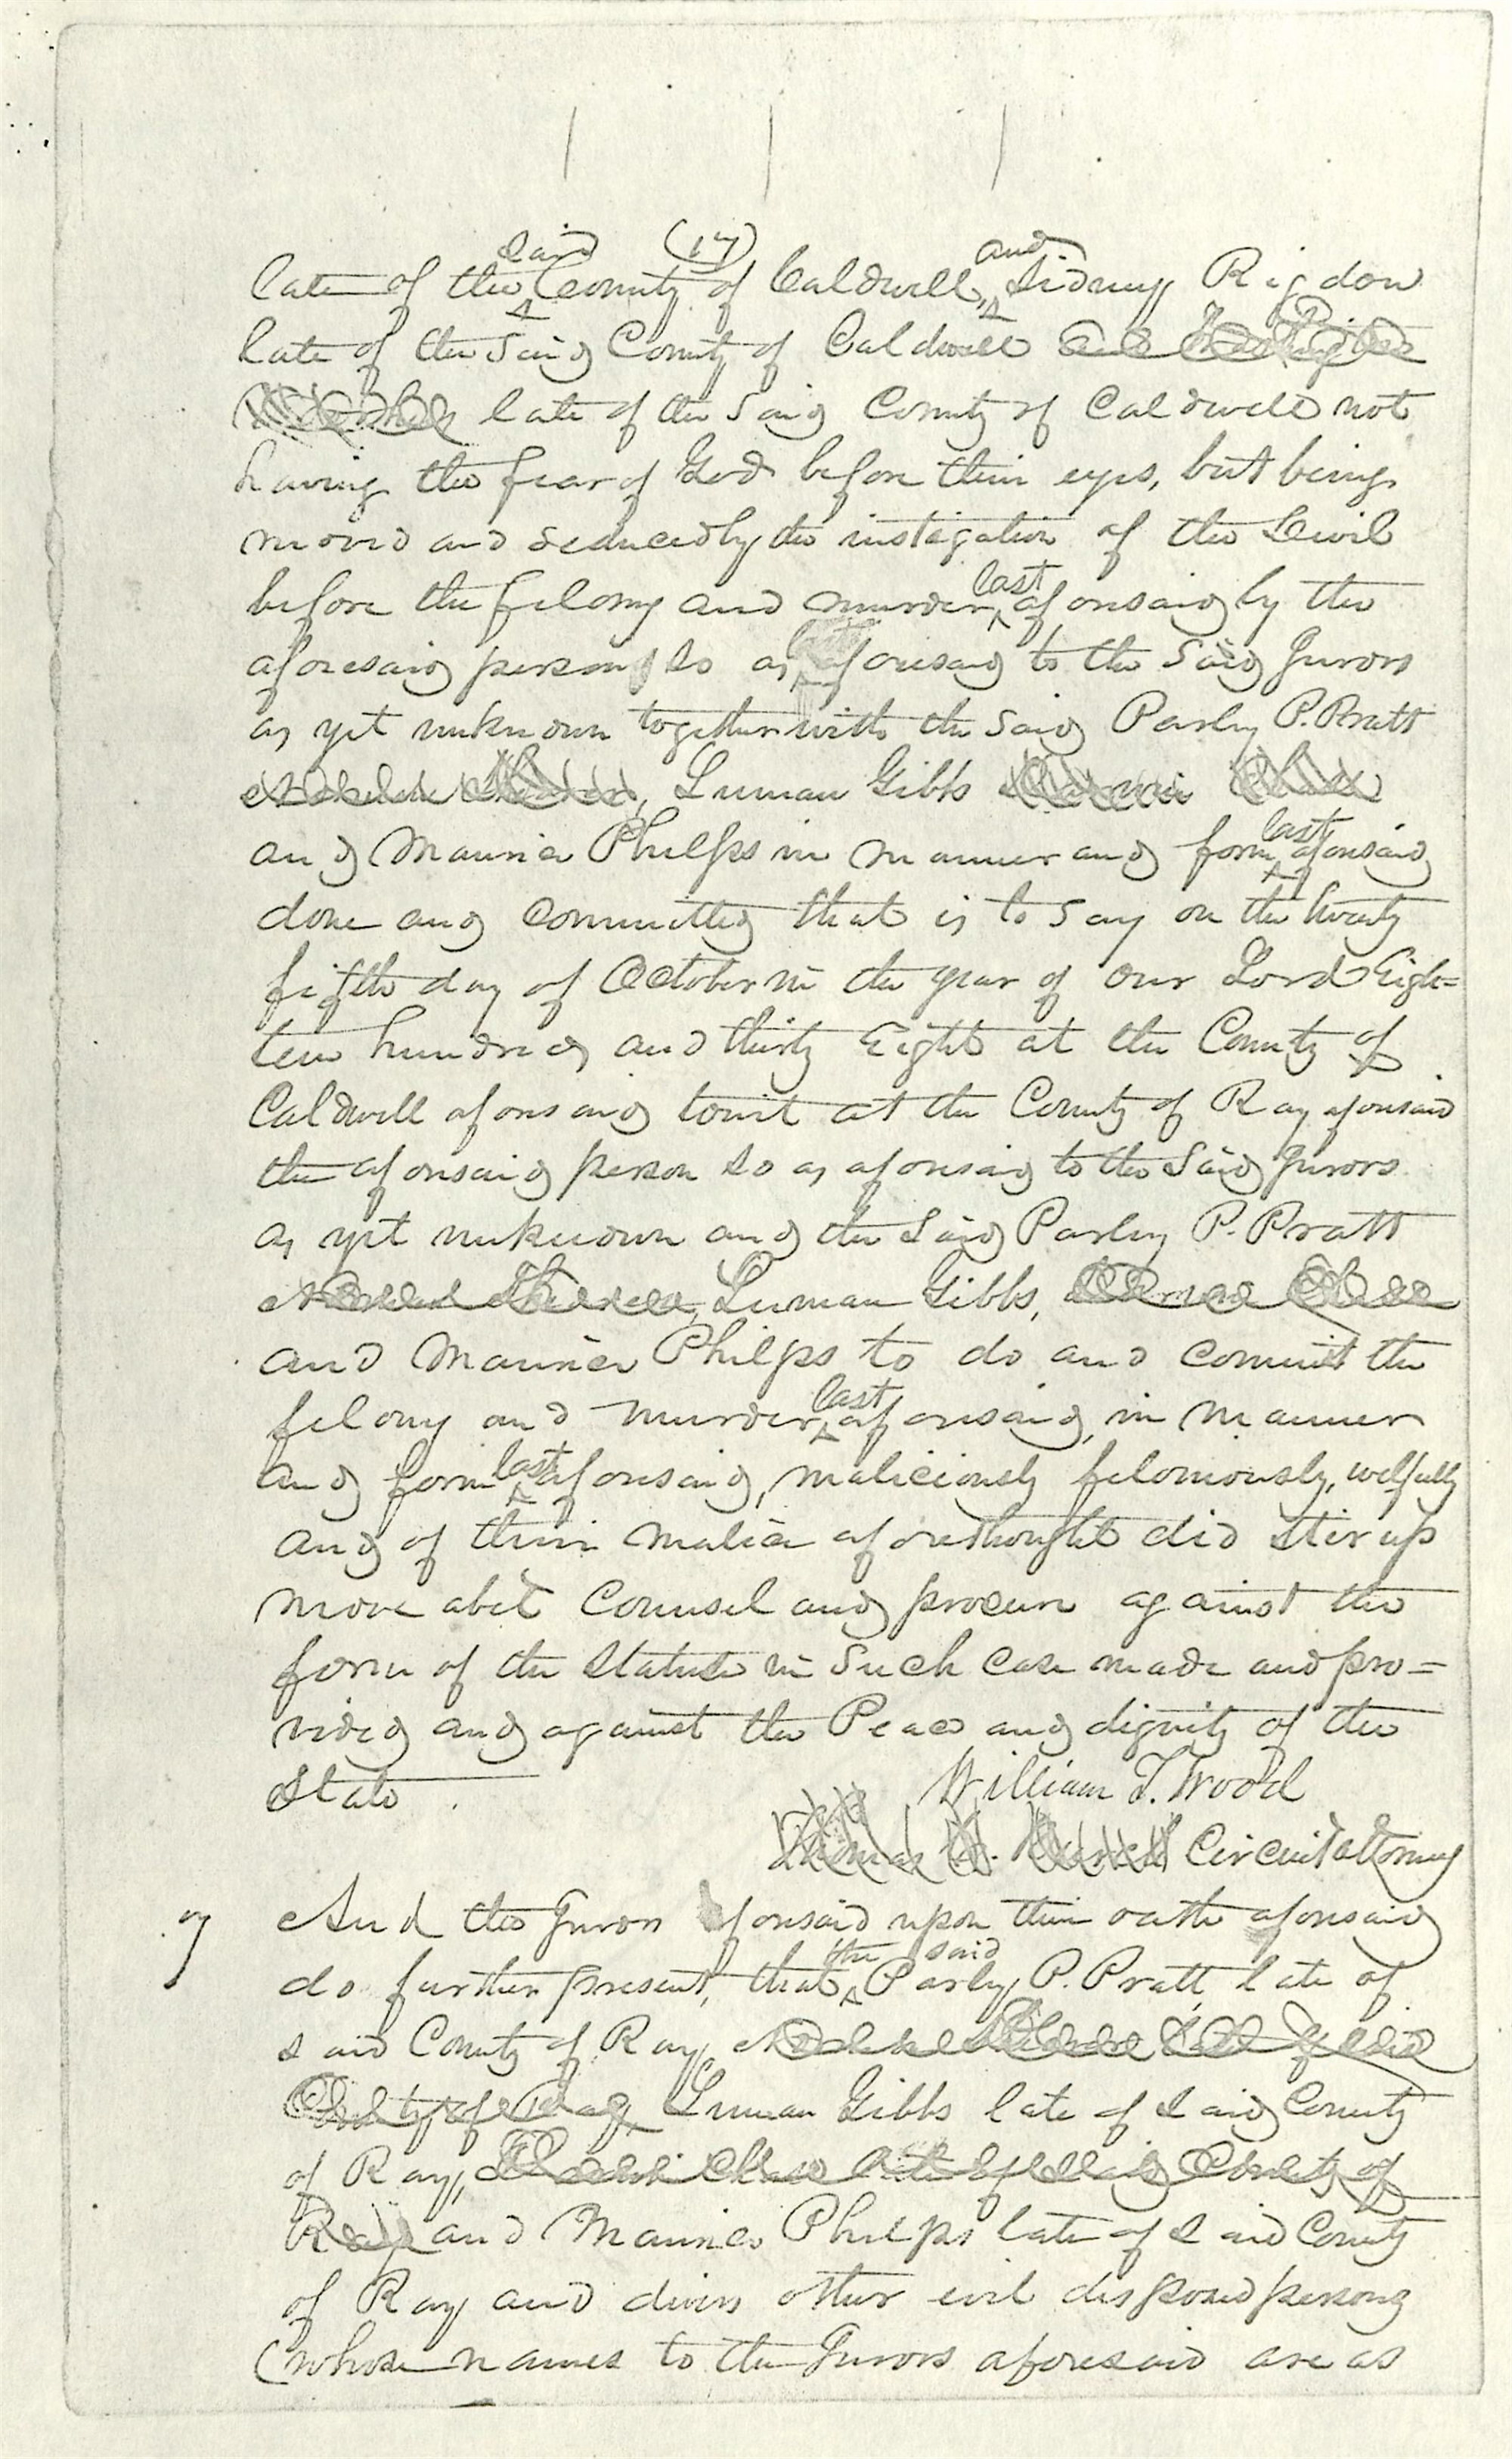 (17)
late of the said County of Caldwell, and Sidney Rigdon
late of the Said County of Caldwell
late of the Said County of Caldwell not
having the fear of God before their eyes, but being
moved and seduced by the instigation of the Devil
before the felony and murder last aforesaid by the
aforesaid person so as aforesaid to the Said Jurors
as yet unknown together with the Said Parley P. Pratt
Luman Gibbs
and Maurice Phelps in manner and form last aforesaid
done and Committed that is to Say on the twenty
fifth day of October in the year of our Lord Eigh=
teen hundred and thirty Eight at the County of
Caldwell aforesaid towit at the County of Ray aforesaid
the aforesaid person so as aforesaid to the Said Jurors
as yet unknown and the Said Parley P. Pratt
Luman Gibbs,
and Maurice Phelps to do and commit the
felony and murder last aforesaid, in manner
and form last aforesaid, maliciously feloniously, wilfully
and of their malice aforethought did stir up
move abet Counsel and procure against the
form of the Statute in Such case made and pro=
vided and against the Peace and dignity of the
State.
William T. Wood
Circuit attorney
And the Jurors aforesaid upon their oath aforesaid
do further present, that the said Parley P. Pratt, late of
said County of Ray,
Luman Gibbs late of said County
of Ray,
and Maurice Phelps late of said County
of Ray and divers other evil disposed persons
(whose names to the Jurors aforesaid are as